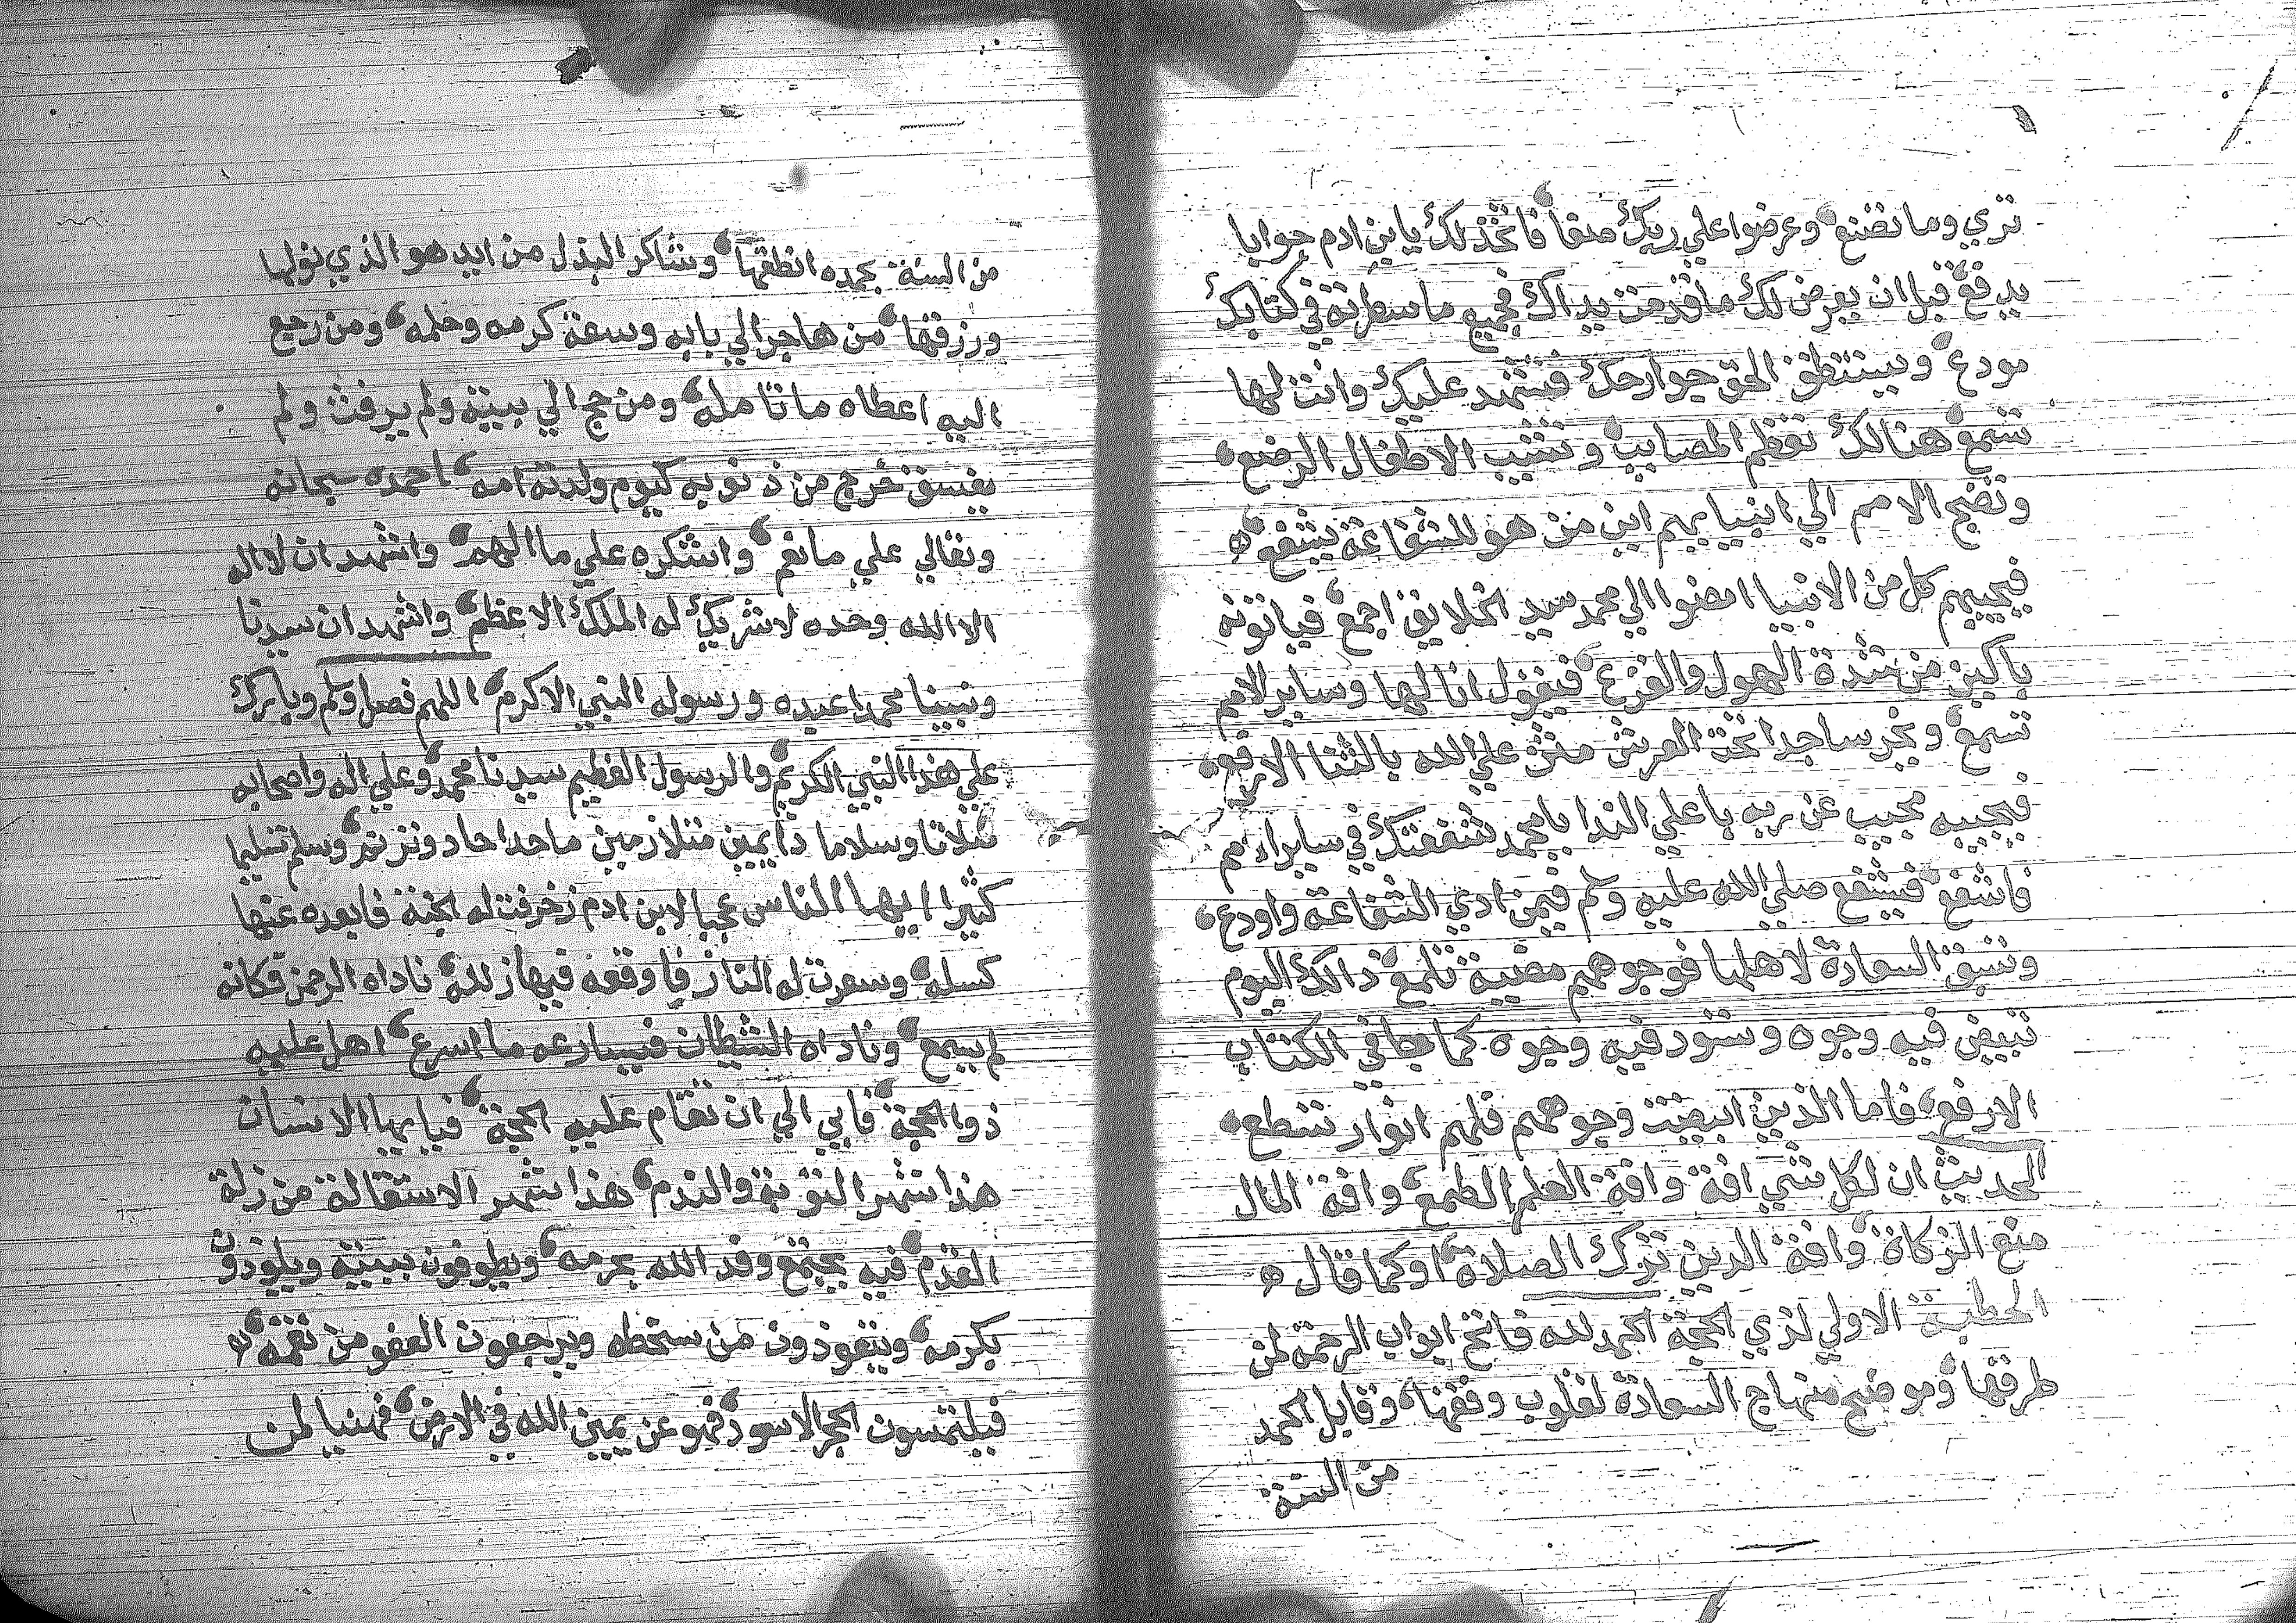 تري وما تصنع وعرضوا علي ربك صفا فاتخذ لك يا ابن ادم جوابا
يدفع قبل ان يعرض لك ما قدمت يداك فجميع ما سطرته في كتابك
مودع ويستنطق الحق جوارحك فتشهد عليك وانت لها
تسمع هنالك تعظم المصايب وتشيب الاطفال الرضع
وتضج الامم الي انبيايهم اين من هو للشفاعة يشفع
فيجيبهم كل من الانبيا امضوا الي محمد سيد الخلايق اجمع فياتونه
باكين من شدة الهول والفزع فيقول انا لها وساير الامم
تسمع ويخر ساجدا تحت العرش مثن علي الله بالثنا الارفع
فيجيبه مجيب عن ربه باعلي الندا يا محمد شفعتك في ساير الامم
فاشفع فيشفع صلي الله عليه وسلم فيمن ادي الشفاعة واودع
وتسبق السعادة لاهلها فوجوههم مضية تلمع ذالك اليوم
تبيض فيه وجوه وتسود فيه وجوه كما جا في الكتاب
الارفع فاما الذين ابيضت وجوههم فلهم انوار تسطع
الحديث ان لكل شي افة وافة العلم الطمع وافة المال
منع الزكاة وافة الدين ترك الصلاة او كما قال
الخطبة الاولي لذي الحجة الحمد لله فاتح ابواب الرحمة لمن
طرقها وموضح منهاج السعادة لقلوب وفقها وقابل الحمد
من السنة
من السنة بحمده انطقها وشاكر البذل من ايد هو الذي نولها
ورزقها من هاجر الي بابه وسعة كرمه وحلمه ومن رجع
اليه اعطاه ما تامله ومن حج الي بيته ولم يرفث ولم
يفسق خرج من ذنوبه كيوم ولدته امه احمده سبحانه
وتعالي علي ما نعم واشكره علي ما الهم واشهد ان لا اله
الا الله وحده لا شريك له الملك الاعظم واشهد ان سيدنا
ونبينا محمدا عبده ورسوله النبي الاكرم اللهم فصل وسلم وبارك
علي هذا النبي الكريم والرسول العظيم سيدنا محمد وعلي اله واصحابه
صلاتا وسلاما دايمين متلازمين ما حدا حاد وترنم وسلم تسليما
كثيرا ايها الناس عجبا لابن ادم زخرفت له الجنة فابعده عنها
كسله وسعرت له النار فاوقعه فيها زلله ناداه الرحمن فكانه
لم يسمع وناداه الشيطان فيسارعه ما اسرع اهل عليه
ذوا الحجة فابي الي ان تقام عليه الحجة فيا ايها الانسان
هذا شهر التوبة والندم هذا شهر الاستقالة من زلة
القدم فيه يجتمع وفد الله بحرمه ويطوفون ببيته ويلوذون
بكرمه ويتعوذون من سخطه ويرجعون العفو من نقمه
فيلتمسون الحجر الاسود فهو عن يمين الله في الارض فهنيا لمن